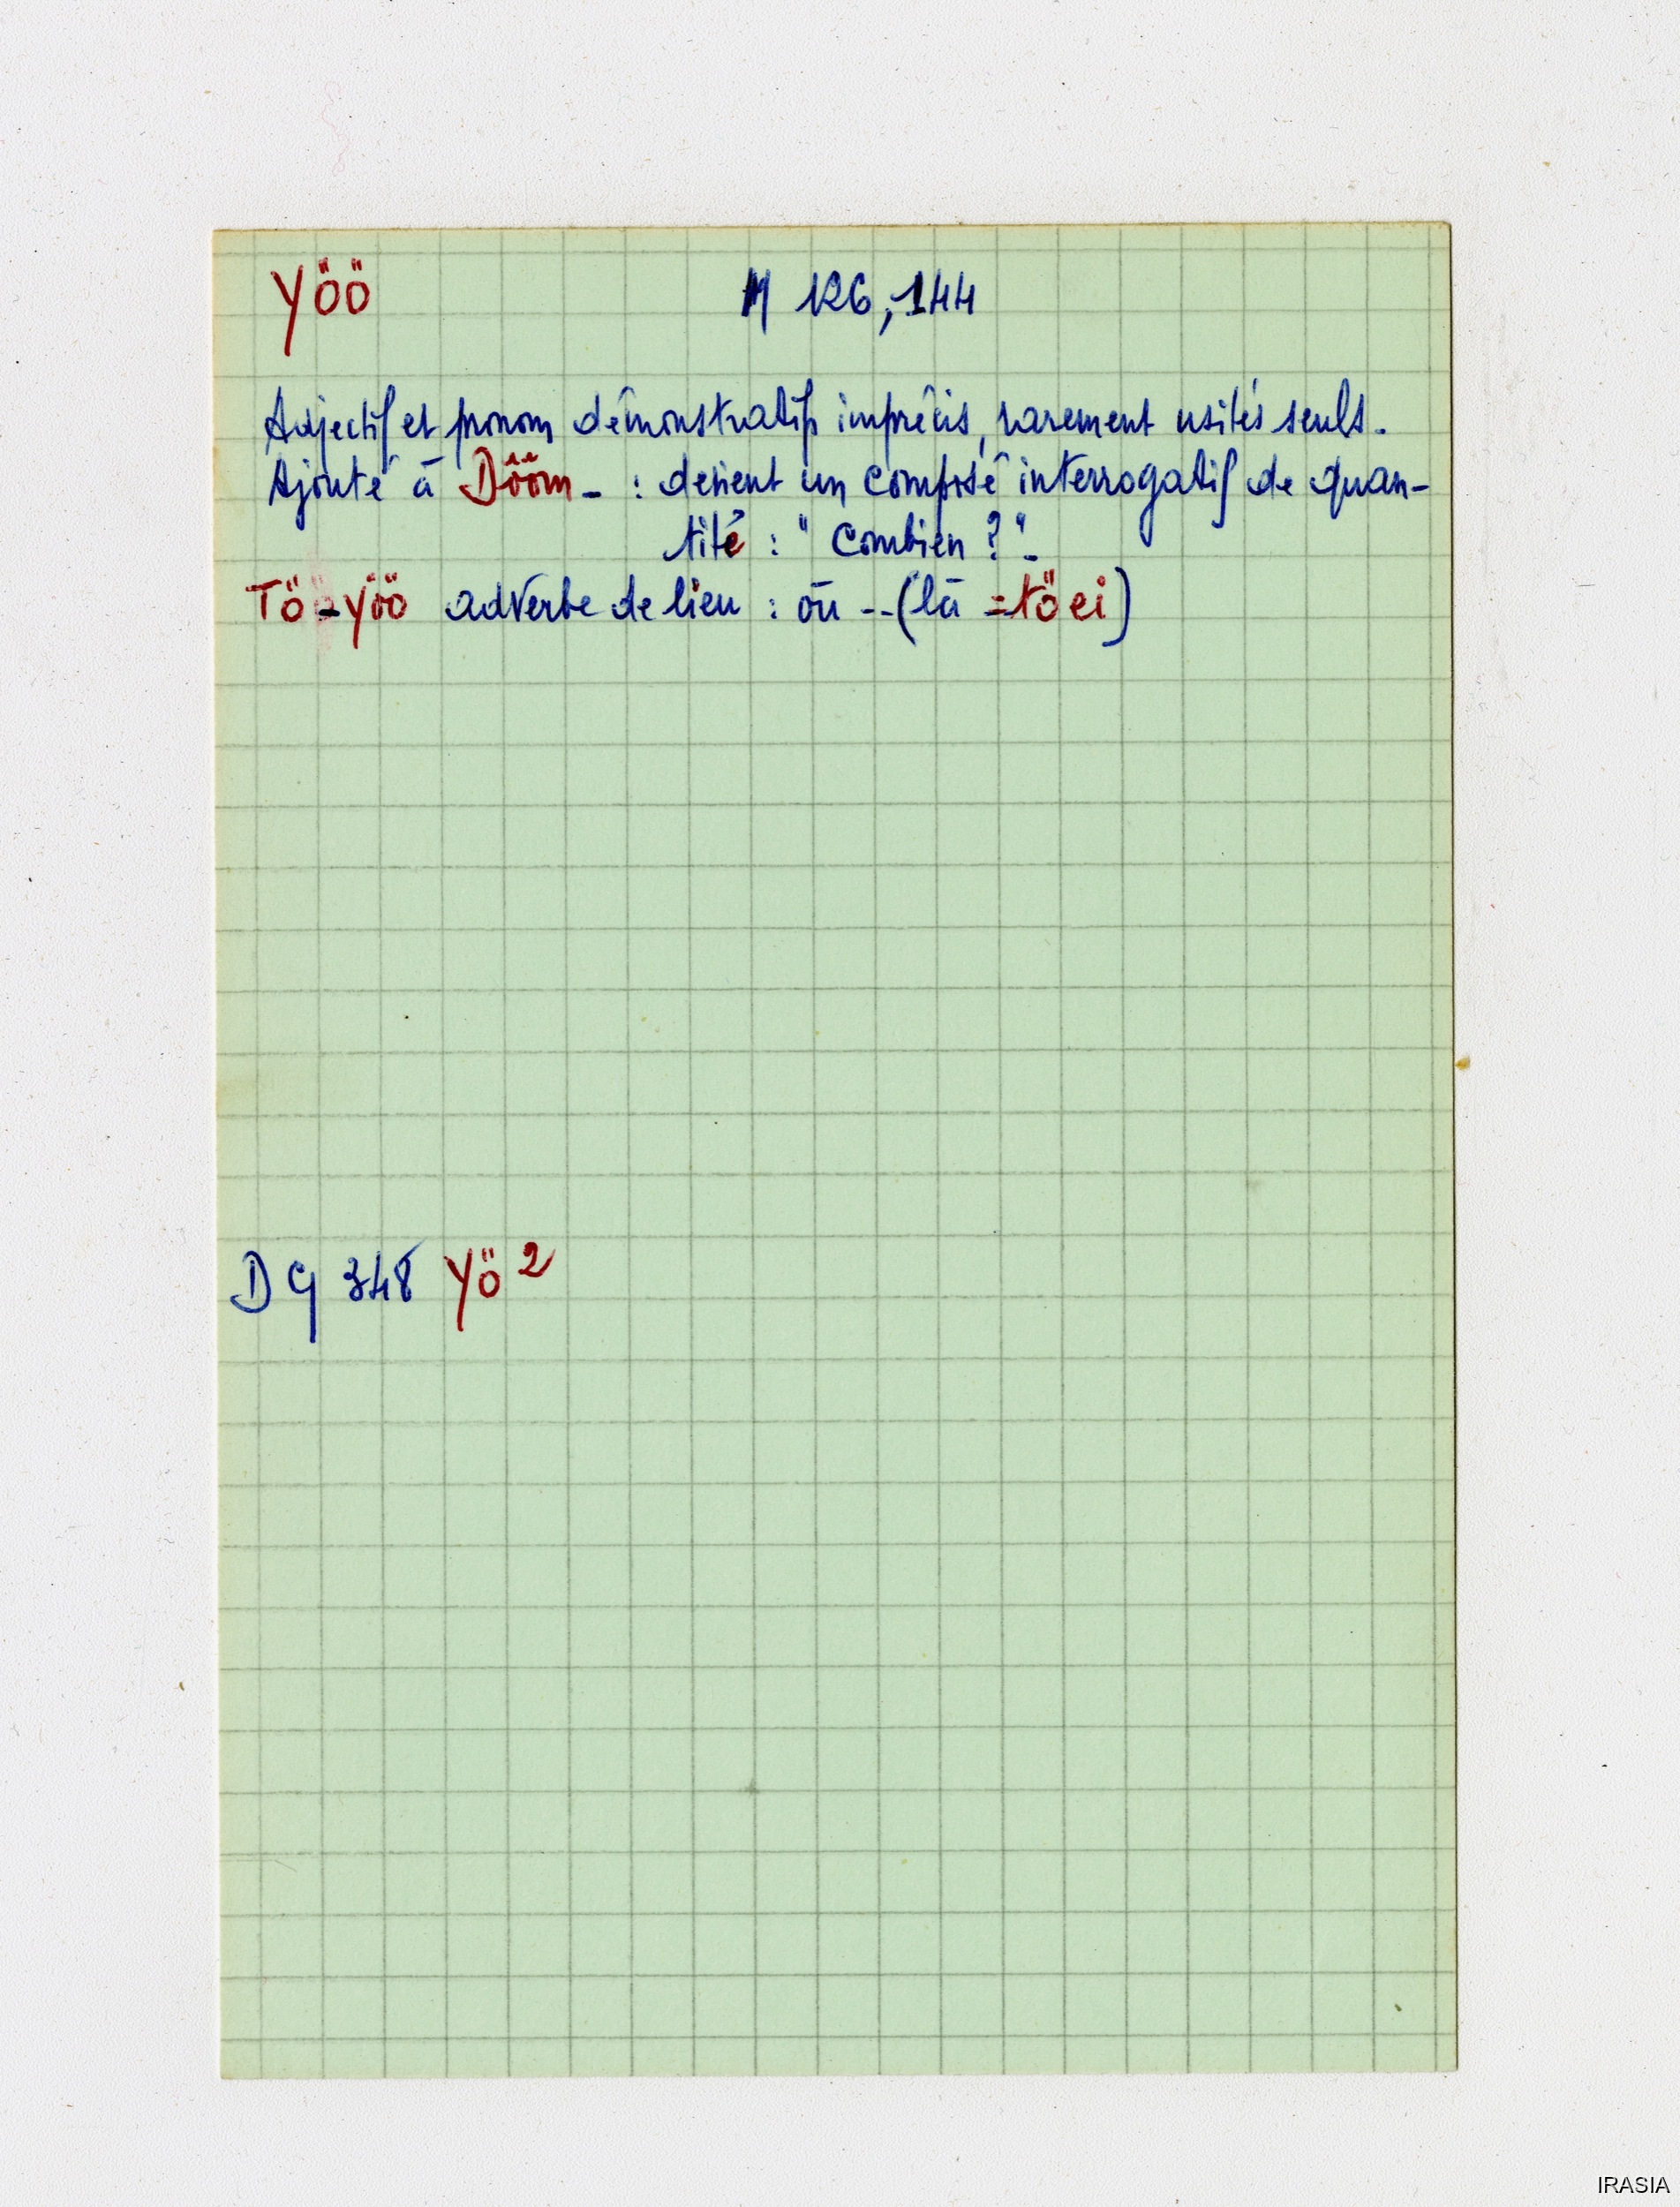 Yöö M 126, 144
Adjectif et pronom démonstratifs imprécis, rarement usités seuls.
Ajouté à Dööm- : devient un composé interrogatif de quan-
tité : " Combien ? ".
Tö-yöö adverbe de lieu : où -- (là = töei)
DG 348 Yö 2
IRASIA